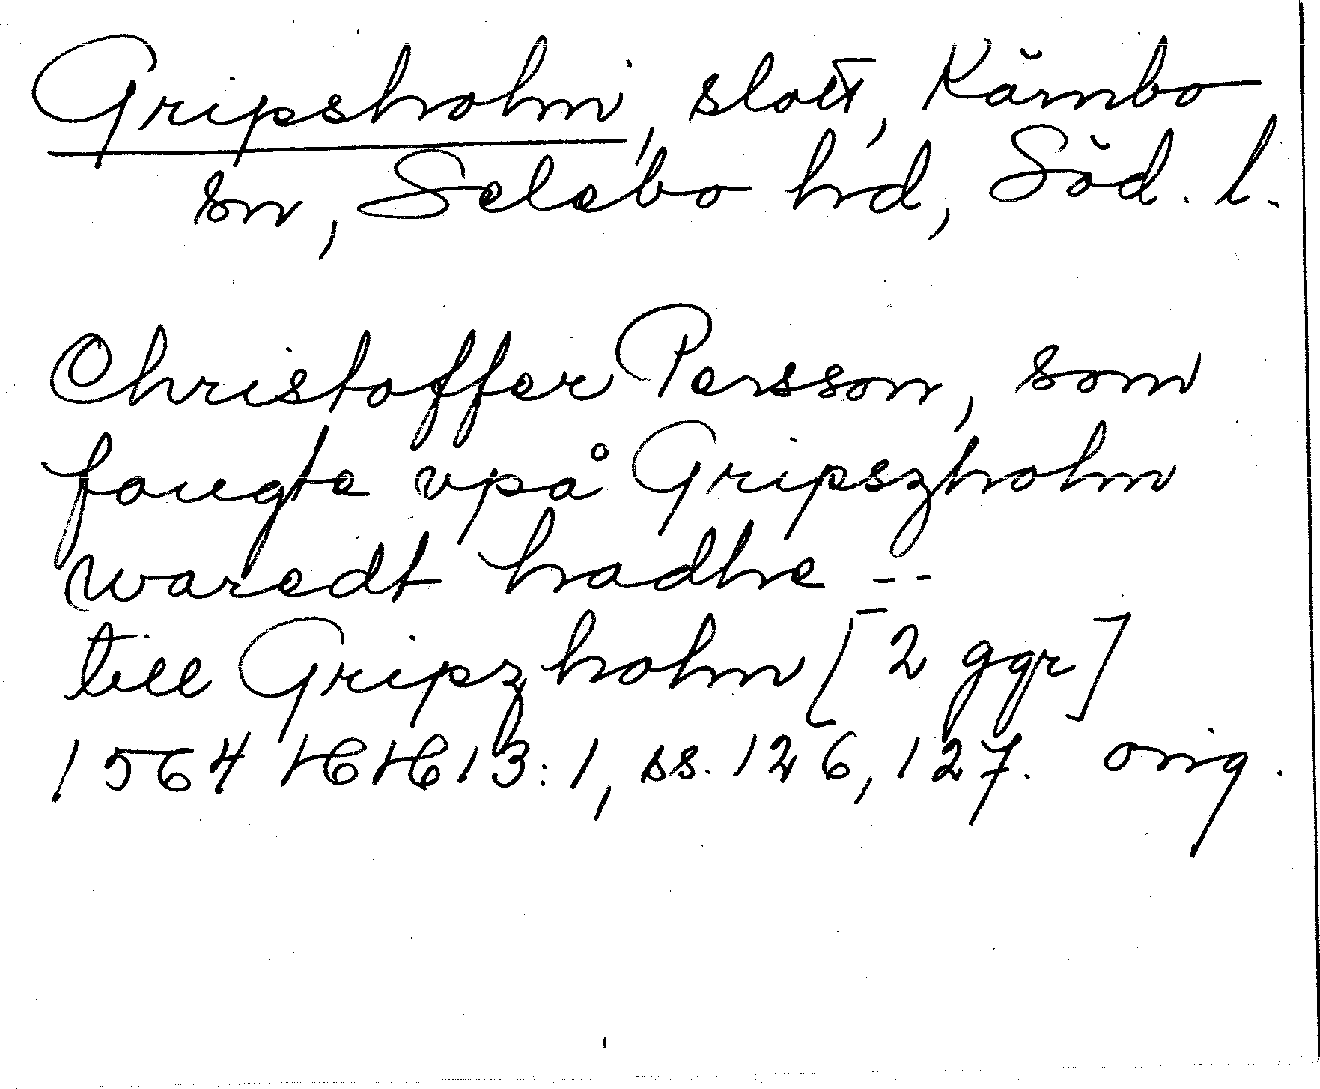 Gripsholm, slott, Kärnbo
sn, Selebo hd, Söd. l.
Christoffer Persson, som
fougte vpå Gripszholm
waredt hadhe --
till Gripzholm [2 ggr]
1564 HCHC13:1, ss. 126, 127. orig.